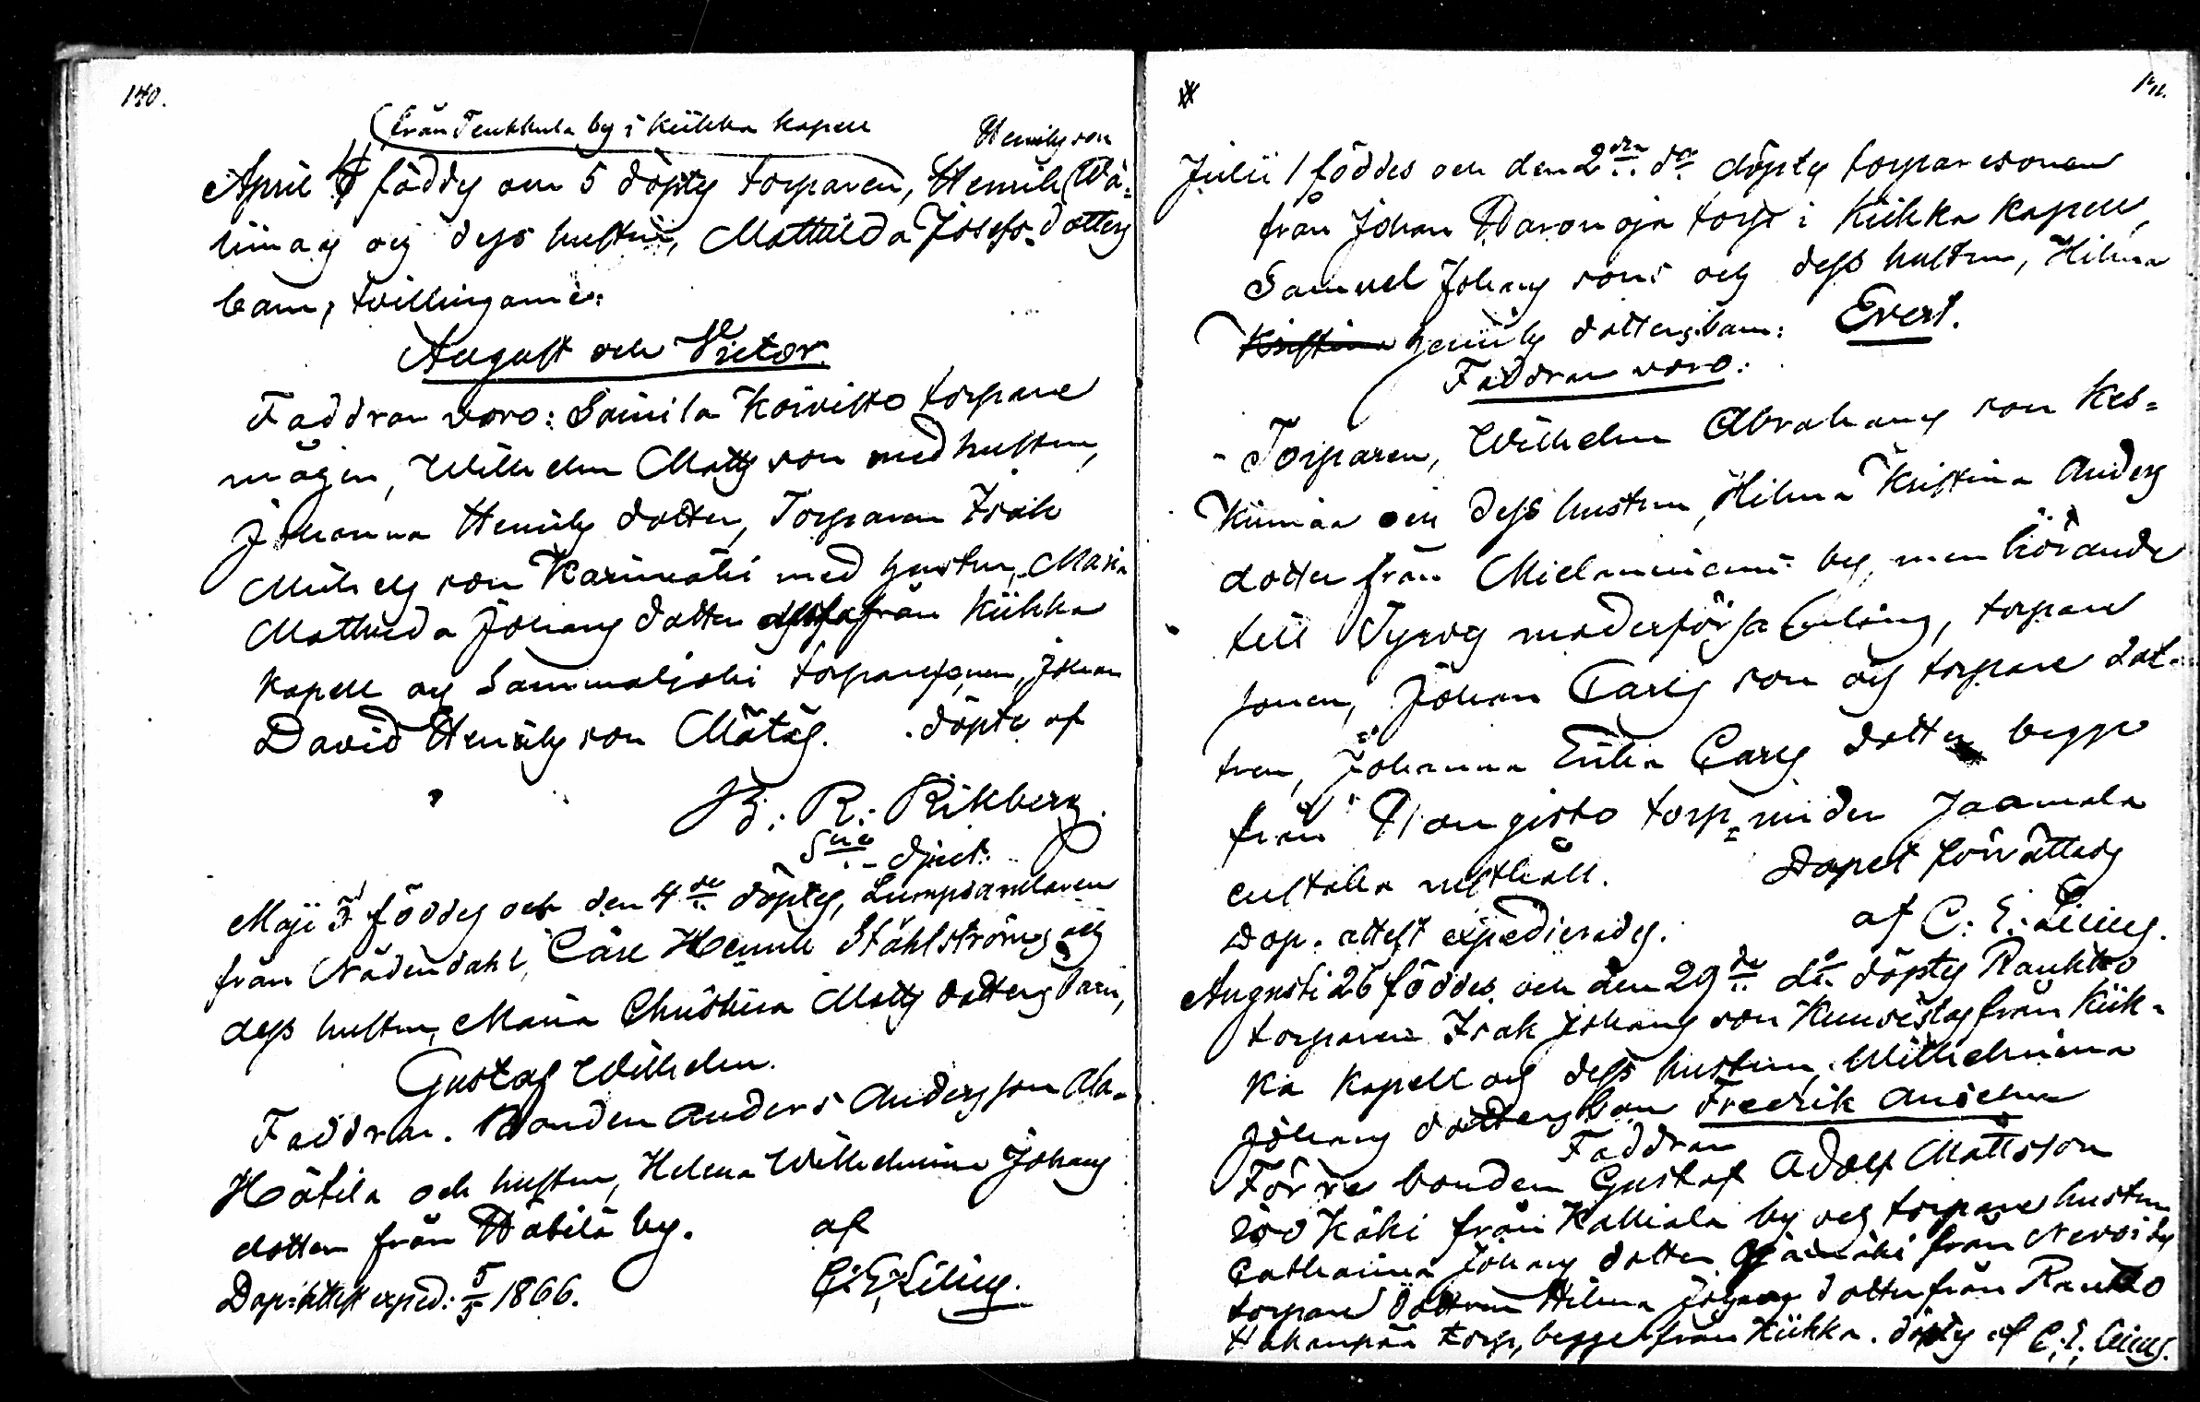 140.
(från Teukkula by i Kiikka Kapell
Henriksson
April 4 föddes och 5 döptes torparen, Henrik Wä=
limaas och dess hustrus, Mathilda Josefsdotters
barn, tvillingarne:
August och Victor.
Faddrar voro: Soinila Koivisto torpare
mågen, Wilhelm Matts son med hustrun,
Johanna Henriks dotter, Torparen Isak
Michels son Karimäki med hustrun, Maria
Mathilda Johans dotter från Kiikka
Kapell och Sammaljoki torparesonen, Johan
David Henriks son Mätäs. döpte af
B: R: Rikberg.
Maji 3 föddes och den 4de döptes, Lumpsamlaren
från Nådendahl, Carl Henrik Ståhlströms och
dess hustrus, Maria Christina Matts dotters barn,
Gustaf Wilhelm.
Faddrar. Bonden Anders Andersson Ala-
Hätilä och hustrun, Helena Wilhelmina Johans
dotter från Hätilä by. af
Dop:attest exped: 5/5 1866. C: E: Lilius.
Julii 1 föddes och den 2dra do döptes torparesonen
från Johan Waronoja torp i Kiikka Kapell,
Samuel Johans sons och dess hustrus, Hilma
Kristina Henriks dotters barn: Evert.
Faddrar voro:
Torparen, Wilhelm Abrahams son Kes=
kimaa och dess hustru, Hilma Kristina Anders
dotter från by, men hörande
till Tyrvis moderförsamling, torpare
sonen, Johan Carls son och torpare dot-
tren, Johanna Erika Carls dotter begge
från Hangisto torp under Jaamala
Eustola rusthåll. Dopet förrättades
Dop. attest expedierades. af C: E: Lilius.
Augusti 26 föddes och den 29de do döptes Raukko
torparen Isak Johans son Kuusistos från Kiik-
ka Kapell och dess hustrus, Wilhelmina
Johans dotters barn Fredrik Anselm
Faddrar
Förre bonden Gustaf Adolf Mattsson
Käki från Kalliala by och torpare hustrun
Catharina Johans dotter Ojamäki från
torpare dottren Hilma Johans dotter från Raukko
Hakanpää torp, begge från Kiikka. döptes af C. E. Lilius.